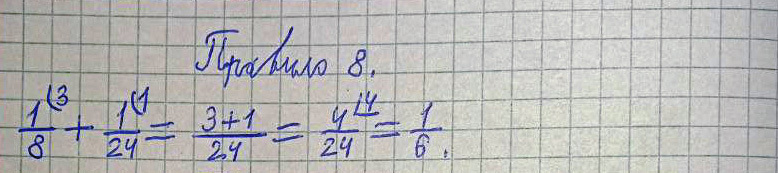 Правило 8.
1/8 (3 + 1/24 (1 = 3+1/24 = 4/24 |4 = 1/6.